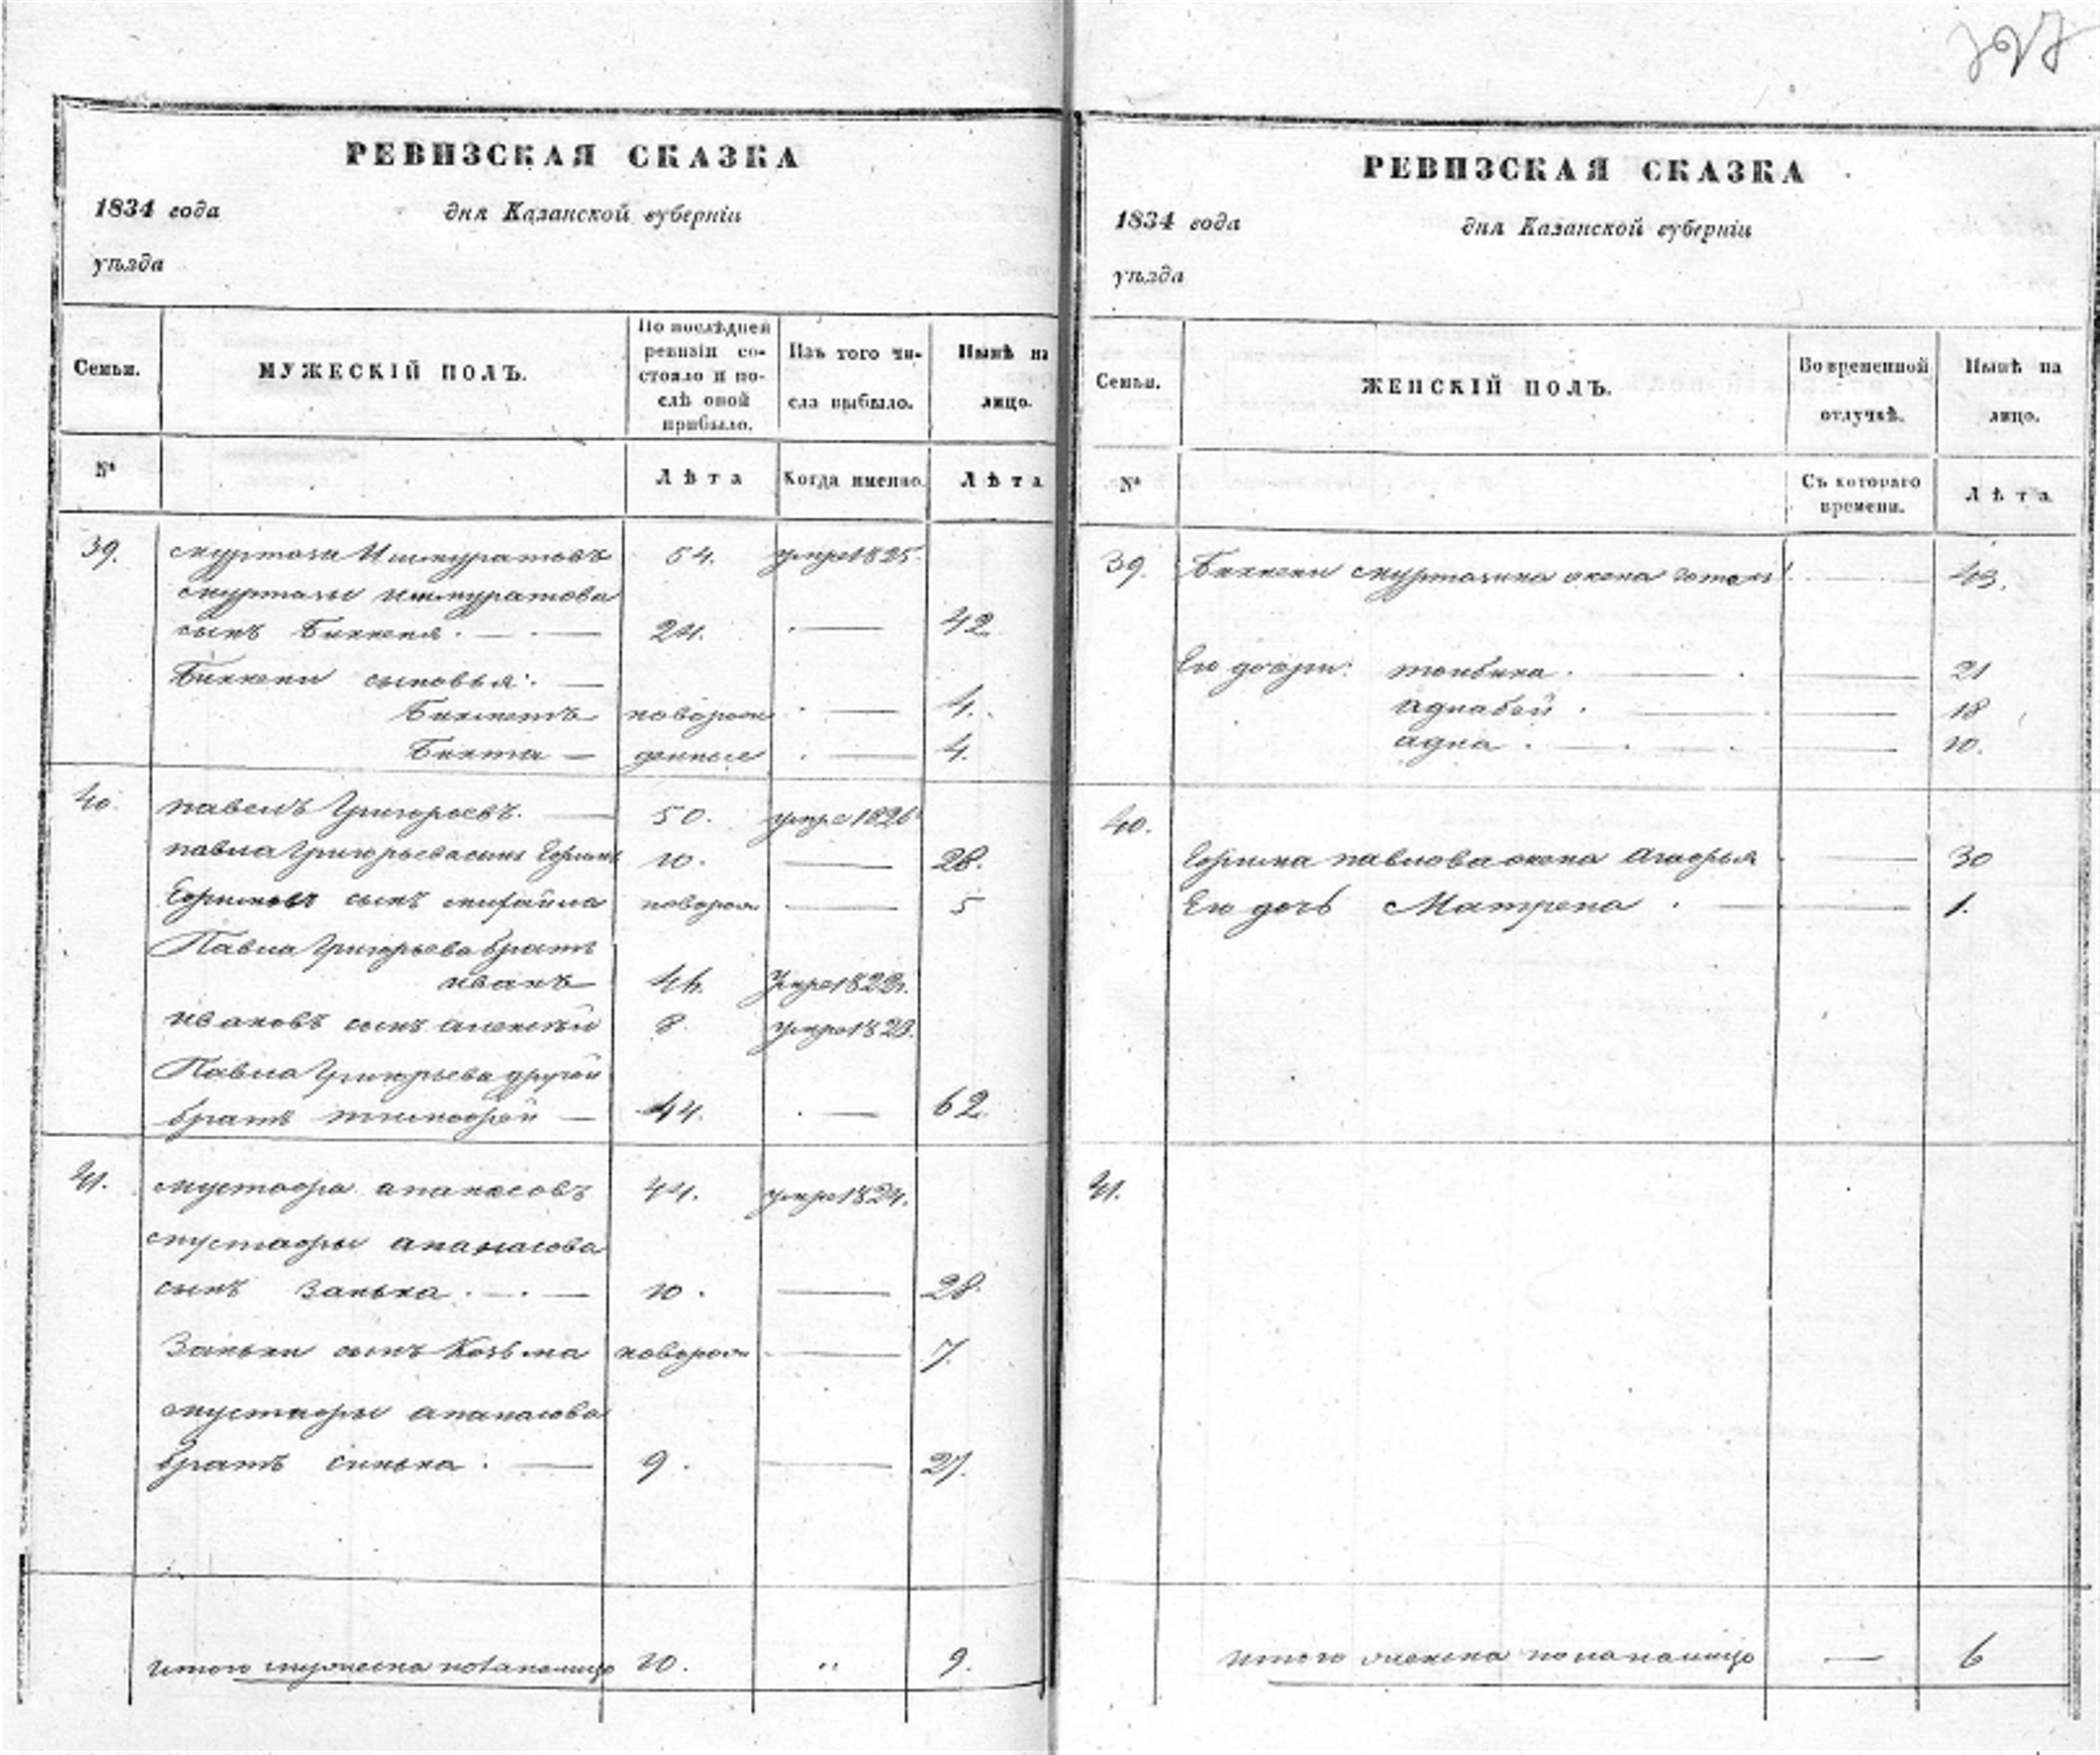 РЕВИЗСКАЯ СКАЗКА
1834 года дня Казанской губерніи
уѣзда
Семьи. МУЖЕСКІЙ ПОЛЪ. По послѣдней ревизіи состояло и послѣ оной прибыло. Изъ того числа выбыло. Нынѣ на лицо.
№ Лѣта Когда именно. Лѣта
39. Муртаза Ишмуратовъ 54. умре 1825.
Муртазы Ишмуратова
сынъ Биккеня. 24. 42
Биккени сыновья:
Бикметъ новорож 4.
Бикта денные 4.
40. Павелъ Григорьевъ. 50. умре 1826
Павла Григорьева сынъ Ефимъ 10. 28.
Ефимовъ сынъ Михайла новорож 5
Павла Григорьева братъ
Иванъ 46. Умре
Ивановъ сынъ Алексѣй 8. умре 1823.
Павла Григорьева другой
братъ Тимофей 44. 62
41. Мустафа Апанасовъ 44. умре 1824.
Мустафы Апанасова
сынъ Занька 10. 28.
Заньки сынъ Козьма новорож 7.
Мустафы Апанасова
братъ Синька. 9. 27.
Итого мужеска пола на лицо 10. „ 9.
РЕВИЗСКАЯ СКАЗКА
1834 года дня Казанской губерніи
уѣзда
Семьи. ЖЕНСКІЙ ПОЛЪ. Во временной отлучкѣ. Нынѣ на лицо.
№ Съ котораго времени. Лѣта
39. Биккени Муртазина жена 43.
Ево дочри: 21
18
10.
40.
Ефима Павлова жена 30
Ево дочь Матрена. 1.
41.
Итого женска пола на лицо — 6